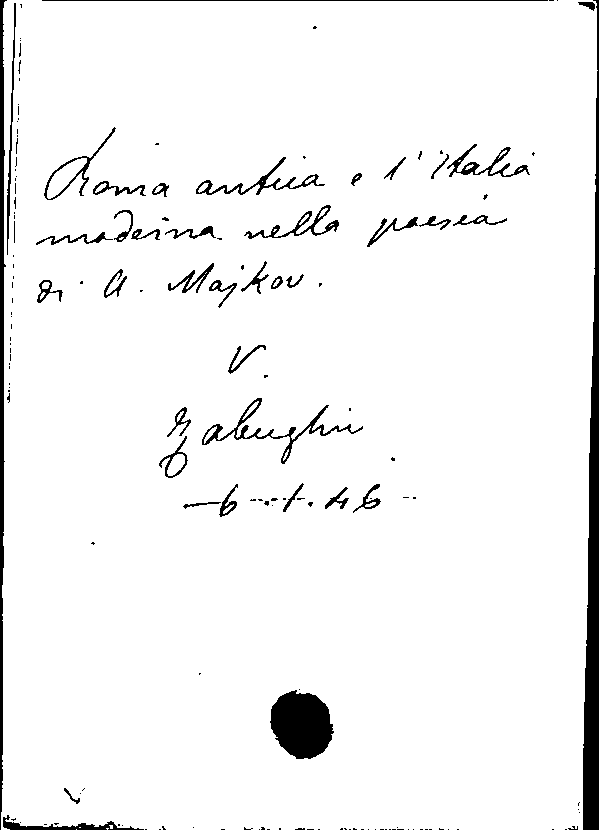 Roma antica e l'Italia
moderna nella poesia
di A. Majkov.
V.
Zabughin
6.1.46